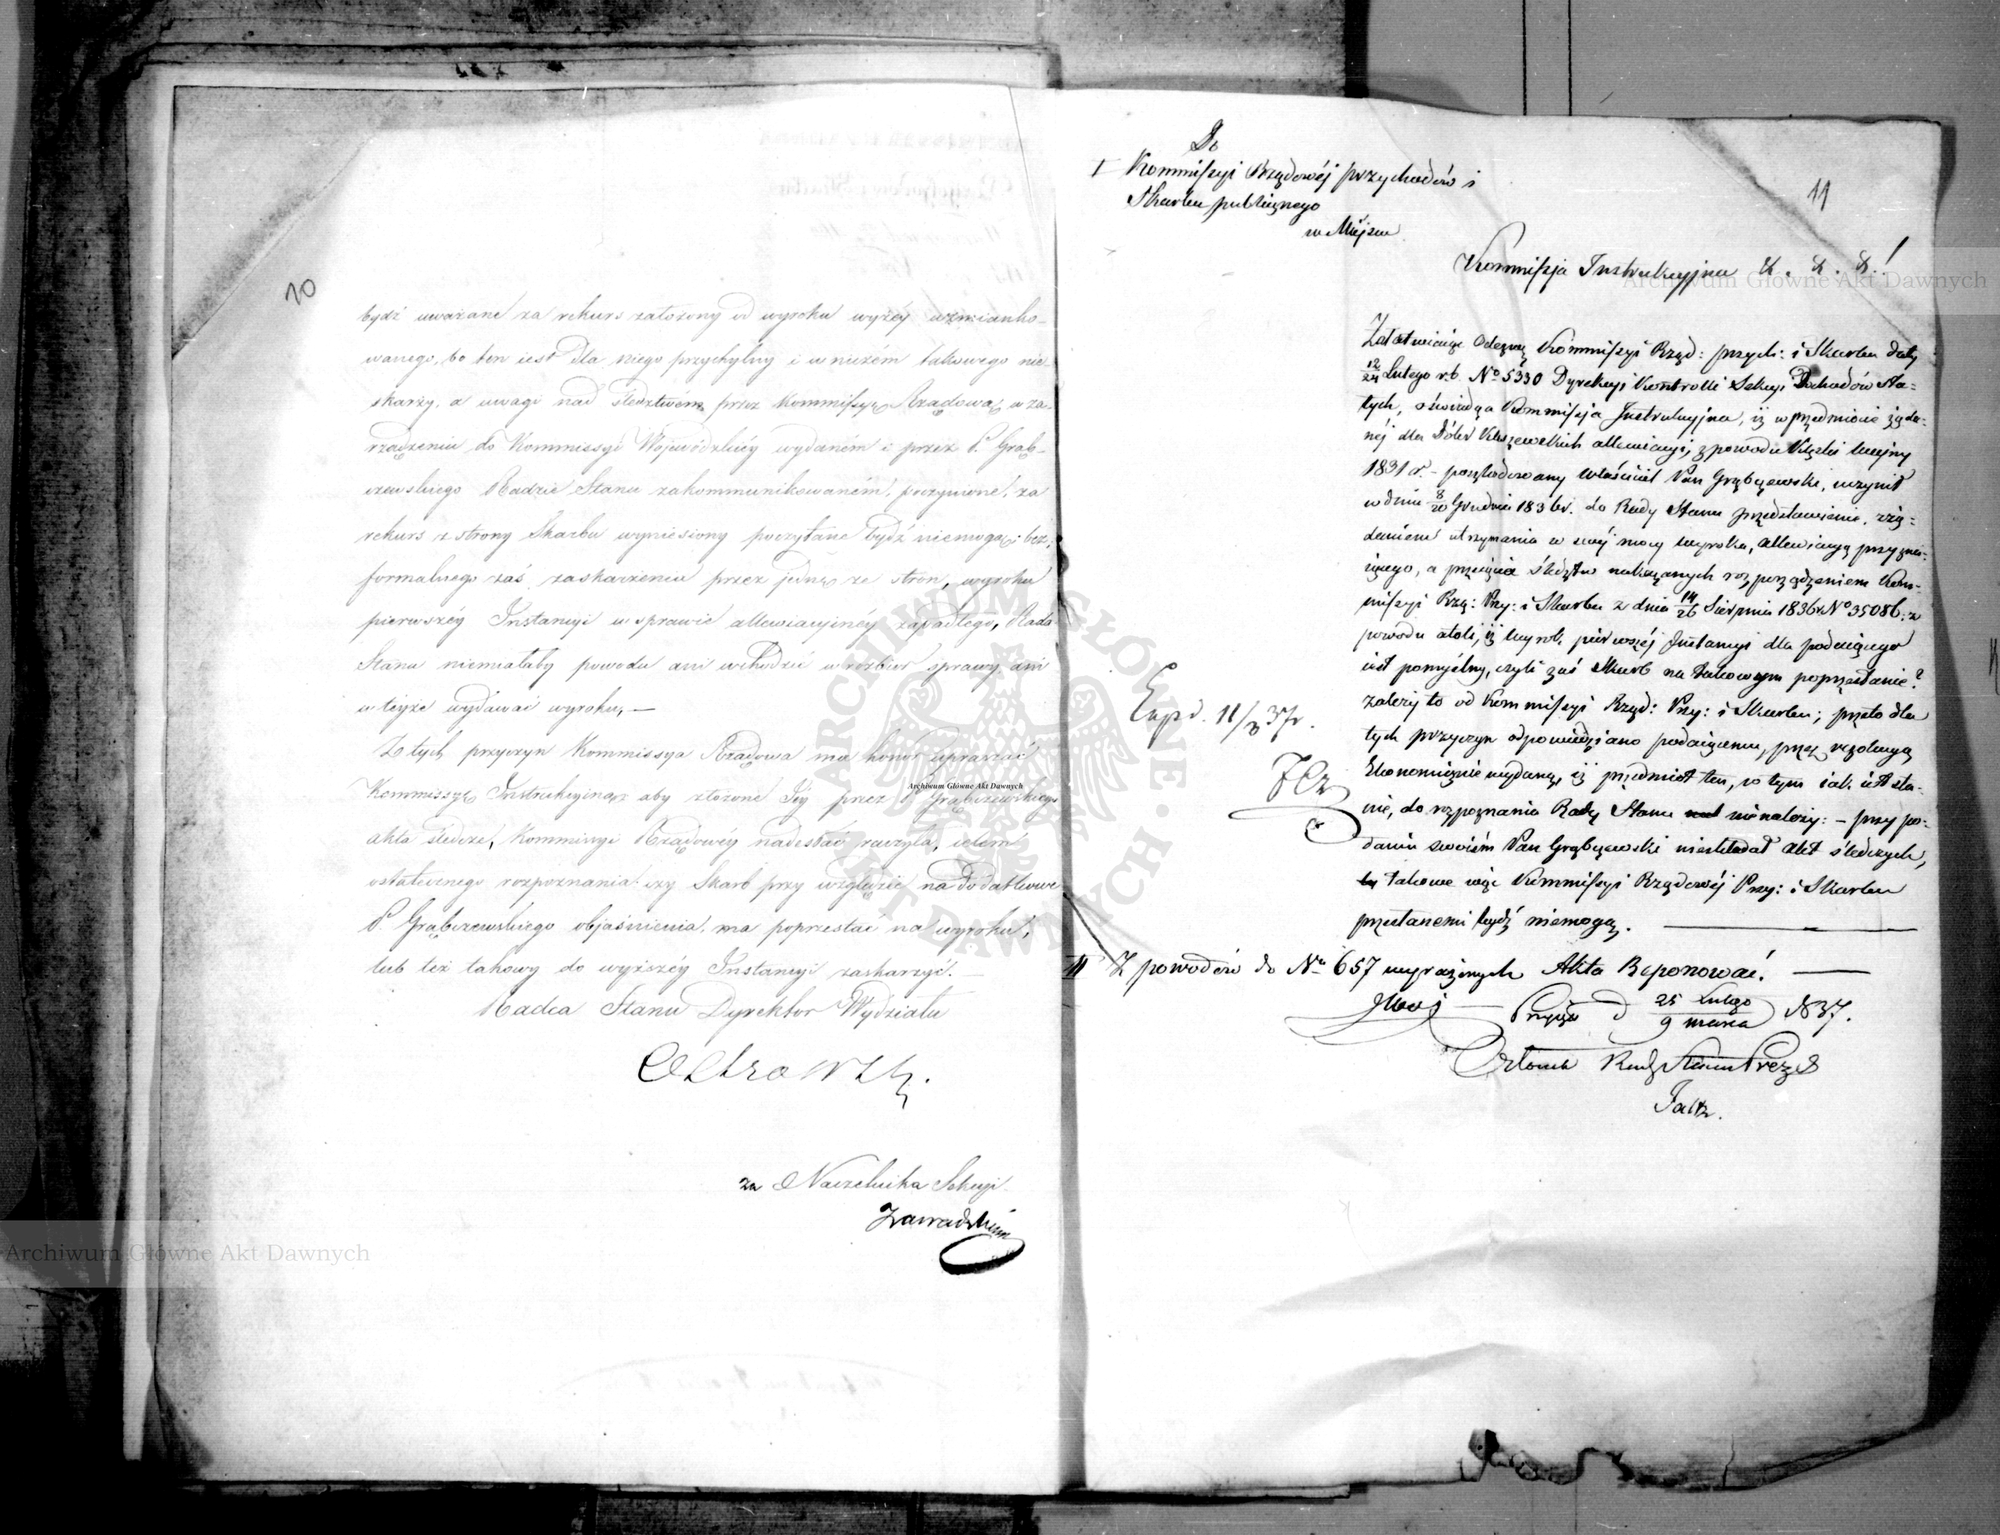 10
bydź uważane za rekurs założony od wyroku wyżéy wzmianko-
wanego, bo ten iest dla niego przychylny i w niczém takowego nie
skarży, a uwagi nad śledztwem przez Kommissyę Rządową w za-
rządzeniu do Kommissyi Wojewódzkiéy wydaném i przez P. Grąb-
czewskiego Radzie Stanu zakommunikowaném, poczynione, za
rekurs z strony Skarbu wyniesiony poczytane bydź niemogą; bez
formalnego zaś zaskarżenia przez jednę ze stron, wyroku
pierwszéy Instancyi w sprawie allewiacyjnéy zapadłego, Rada
Stanu niemiałaby powodu ani wchodzić w rozbiór sprawy, ani
w teyże wydawać wyroku. —
Z tych przyczyn Kommissya Rządowa ma honor upraszać
Kommissyę Instrukcyjną, aby złożone Jéy przez P. Grąbczewskiego
akta śledcze, Kommissyi Rządowéy nadesłać raczyła, celem
ostatecznego rozpoznania czy Skarb przy względzie na dodatkowe
P. Grąbczewskiego objaśnienia, ma poprzestać na wyroku,
lub też takowy do wyższéy Instancyi zaskarżyć. —
Radca Stanu Dyrektor Wydziału
za Naczelnika Sekcyi
Zawadzki
11
Do
I Kommissyi Rządowéj przychodów i
Skarbu publicznego
w Miéjscu
Kommissja Instrukcyjna &. &. &.
Załatwiaiąc odezwę Kommissyi Rząd: przych: i Skarbu daty
12/24 Lutego r.b. No 5330 Dyrekcyi Kontrolli Sekcyi Dochodów Sta-
łych, oświadcza Kommissja Instrukcyjna, iż w przedmiocie żąda-
néj dla Dóbr allewiacyi, z powodu klęski wojny
1831 r. - poszkodowany właściciel Pan Grąbczewski, uczynił
w dniu 8/20 Grudnia 1836 r. do Rady Stanu przedstawienie, z żą-
daniem utrzymania w swéj mocy wyroku, allewiacyą przyzna-
iącego, a przecięcia śledztw nakazanych rozporządzeniem Kom-
missyi Rzą: Przy: i Skarbu z dnia 14/26 Sierpnia 1836 r. No 35086. z
powodu atoli, iż wyrok pierwszéj Instancyi dla podaiącego
iest pomyślny, czyli zaś Skarb na takowym poprzestanie?
zależy to od Kommissyi Rząd: Przy: i Skarbu; przeto dla
tych przyczyn odpowiedziano podaiącemu, przez rezolucyą
Ekonomicznie wydaną, iż przedmiot ten, w tym iak iest sta-
nie, do rozpoznania Rady Stanu nienależy: - przy po-
daniu swoiém Pan Grąbczewski nieskładał Akt śledczych,
takowe więc Kommissyi Rządowéj Przy: i Skarbu
przesłanemi bydź niemogą.
Exped. 11/3 37 r.
II Z powodów do No 657 wyrażonych Akta Reponować.
25 Lutego
9 marca 1837.
Członek Rady Stanu Prezes
Faltz.
Archiwum Główne Akt Dawnych
Archiwum Główne Akt Dawnych
Archiwum Główne Akt Dawnych
ARCHIWUM GŁÓWNE AKT DAWNYCH